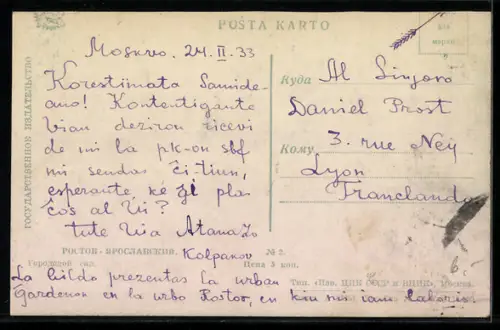 POŜTA KARTO
Moskvo. 24. II. 33
Korestimata Samide-
ano! Kontentigante
vian deziron ricevi
de mi la pk-on sbf
mi sendas ĉi-tiun,
esperante ke ĝi pla-
ĉos al Vi?
tute Via Atanazo
Kolpakov
La bildo prezentas la urban
Ĝardenon en la urbo Rostov, en kiu mi iam laboris.
Куда
Al Sinjoro
Daniel Prost
Кому
3. rue Ney
Lyon
Franclando
ГОСУДАРСТВЕННОЕ ИЗДАТЕЛЬСТВО
РОСТОВ-ЯРОСЛАВСКИЙ.
№ 2.
Городской сад.
Цена 5 коп.